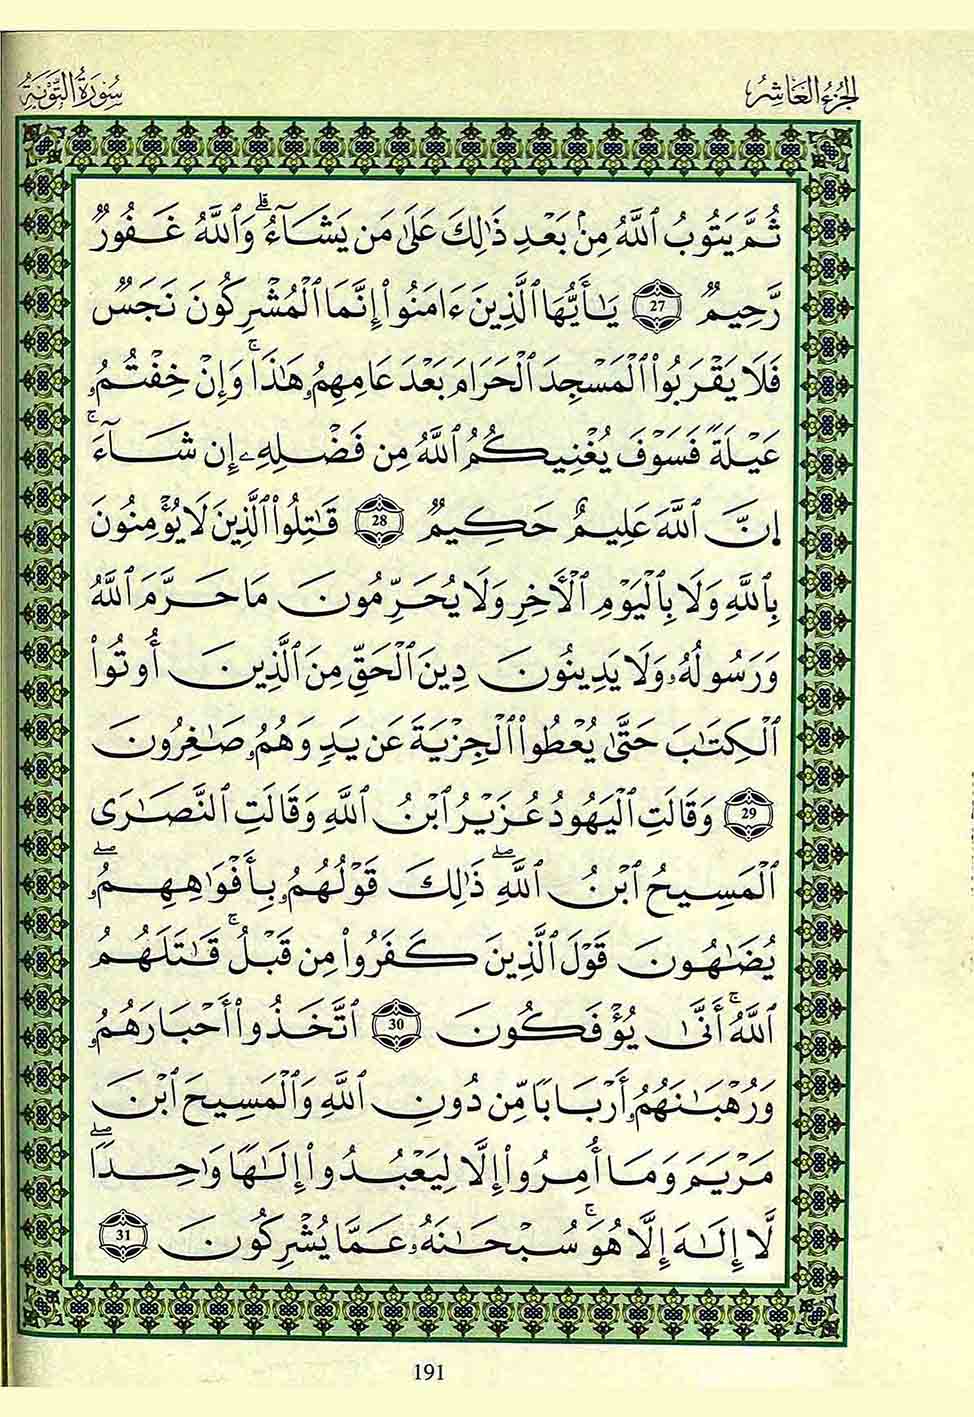 الجُزْءُ العَاشِرُ
سُورَةُ التَّوْبَةِ
ثُمَّ يَتُوبُ ٱللَّهُ مِنۢ بَعْدِ ذَٰلِكَ عَلَىٰ مَن يَشَآءُ ۗ وَٱللَّهُ غَفُورٌ
رَّحِيمٌ 27 يَـٰٓأَيُّهَا ٱلَّذِينَ ءَامَنُوٓا۟ إِنَّمَا ٱلْمُشْرِكُونَ نَجَسٌ
فَلَا يَقْرَبُوا۟ ٱلْمَسْجِدَ ٱلْحَرَامَ بَعْدَ عَامِهِمُۥ هَـٰذَا ۚ وَإِنْ خِفْتُمُۥ
عَيْلَةً فَسَوْفَ يُغْنِيكُمُ ٱللَّهُ مِن فَضْلِهِۦ إِن شَآءَ ۚ
إِنَّ ٱللَّهَ عَلِيمٌ حَكِيمٌ 28 قَـٰتِلُوا۟ ٱلَّذِينَ لَا يُؤْمِنُونَ
بِٱللَّهِ وَلَا بِٱلْيَوْمِ ٱلْأَخِرِ وَلَا يُحَرِّمُونَ مَا حَرَّمَ ٱللَّهُ
وَرَسُولُهُۥ وَلَا يَدِينُونَ دِينَ ٱلْحَقِّ مِنَ ٱلَّذِينَ أُوتُوا۟
ٱلْكِتَـٰبَ حَتَّىٰ يُعْطُوا۟ ٱلْجِزْيَةَ عَن يَدٍ وَهُمُۥ صَـٰغِرُونَ
29 وَقَالَتِ ٱلْيَهُودُ عُزَيْرُ ٱبْنُ ٱللَّهِ وَقَالَتِ ٱلنَّصَـٰرَى
ٱلْمَسِيحُ ٱبْنُ ٱللَّهِ ۖ ذَٰلِكَ قَوْلُهُمُۥ بِأَفْوَٰهِهِمُۥ ۖ
يُضَـٰهُونَ قَوْلَ ٱلَّذِينَ كَفَرُوا۟ مِن قَبْلُ ۚ قَـٰتَلَهُمُ
ٱللَّهُ ۚ أَنَّىٰ يُؤْفَكُونَ 30 ٱتَّخَذُوٓا۟ أَحْبَارَهُمُۥ
وَرُهْبَـٰنَهُمُۥ أَرْبَابًا مِّن دُونِ ٱللَّهِ وَٱلْمَسِيحَ ٱبْنَ
مَرْيَمَ وَمَا أُمِرُوا۟ إِلَّا لِيَعْبُدُوا۟ إِلَـٰهًا وَٰحِدًا ۖ
لَّا إِلَـٰهَ إِلَّا هُوَ ۚ سُبْحَـٰنَهُۥ عَمَّا يُشْرِكُونَ 31
191